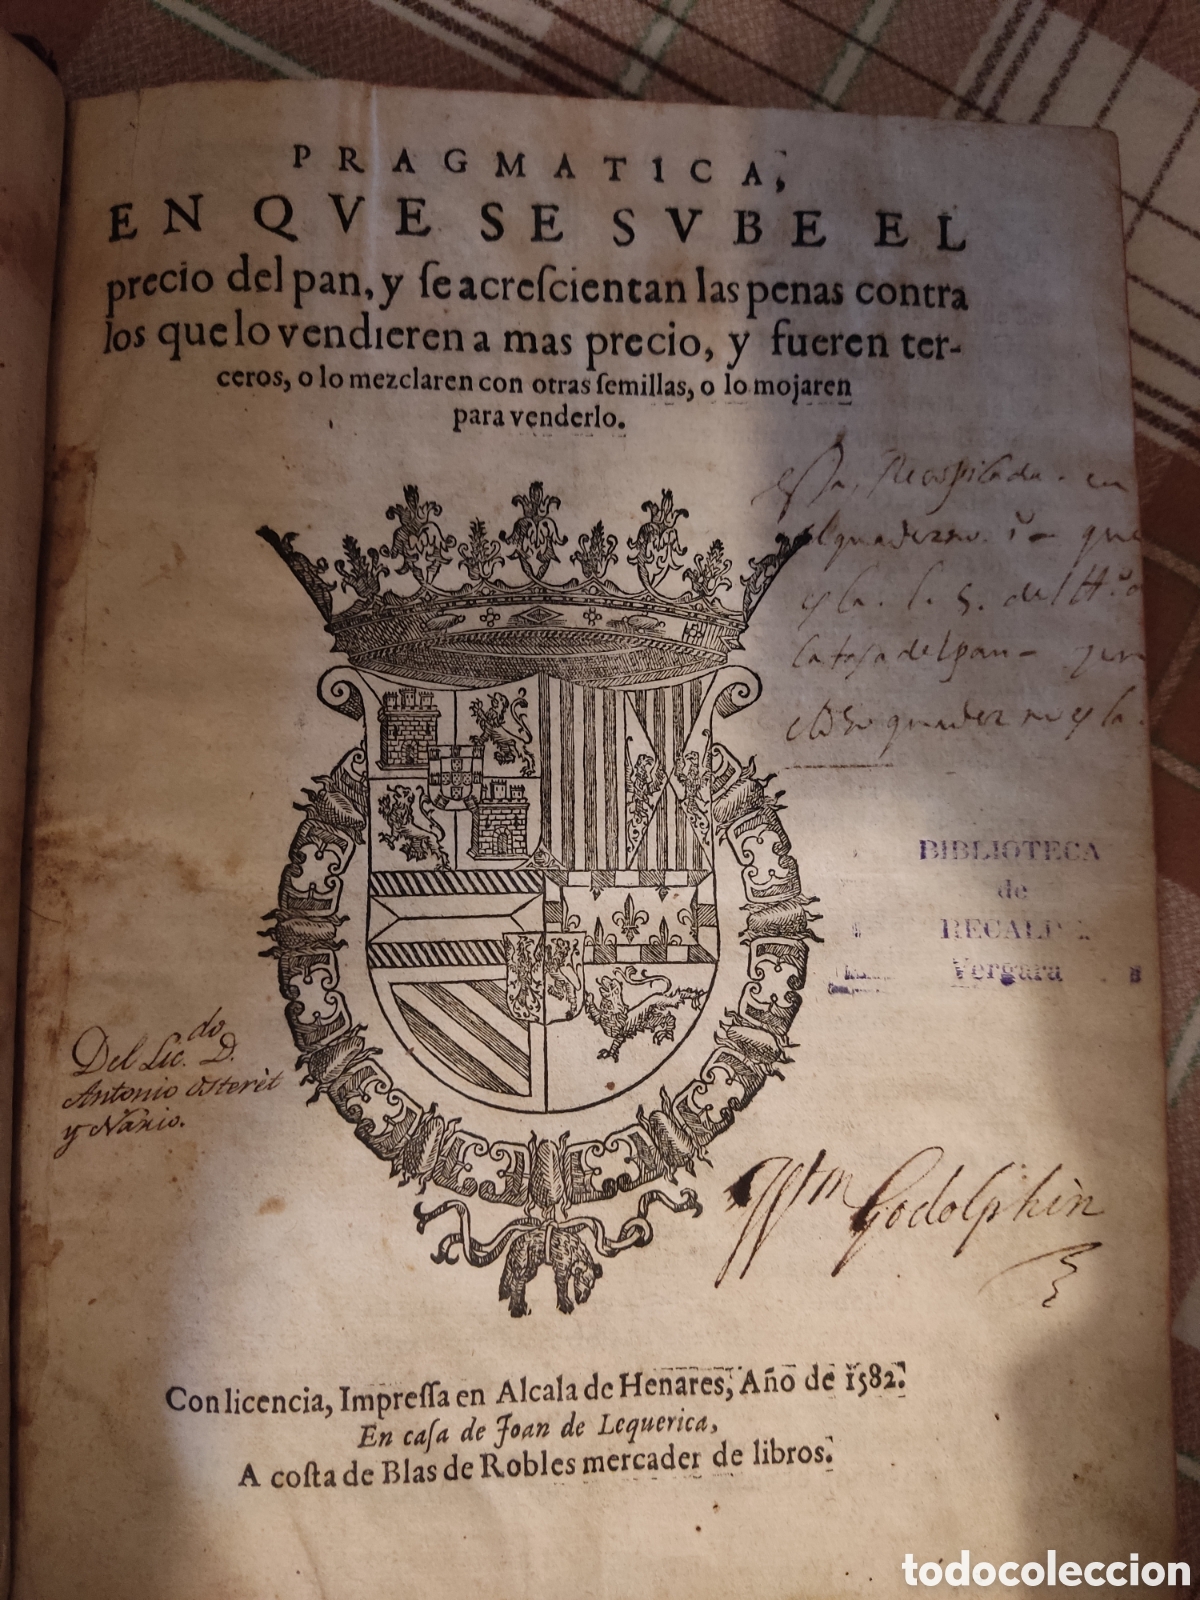 PRAGMATICA,
EN QVE SE SVBE EL
precio del pan, y ſe acreſcientan las penas contra
los que lo vendieren a mas precio, y fueren ter-
ceros, o lo mezclaren con otras ſemillas, o lo mojaren
para venderlo.
quaderno
y la l. 5. del
del pan
quaderno y la
BIBLIOTECA
de
RECALDE
Vergara
Del Lic.do D.
Antonio
y
Wm Godolphin
Con licencia, Impreſſa en Alcala de Henares, Año de 1582.
En caſa de Joan de Lequerica,
A coſta de Blas de Robles mercader de libros.
todocoleccion